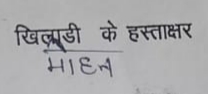 खिलाड़ी के हस्ताक्षर
मोहन